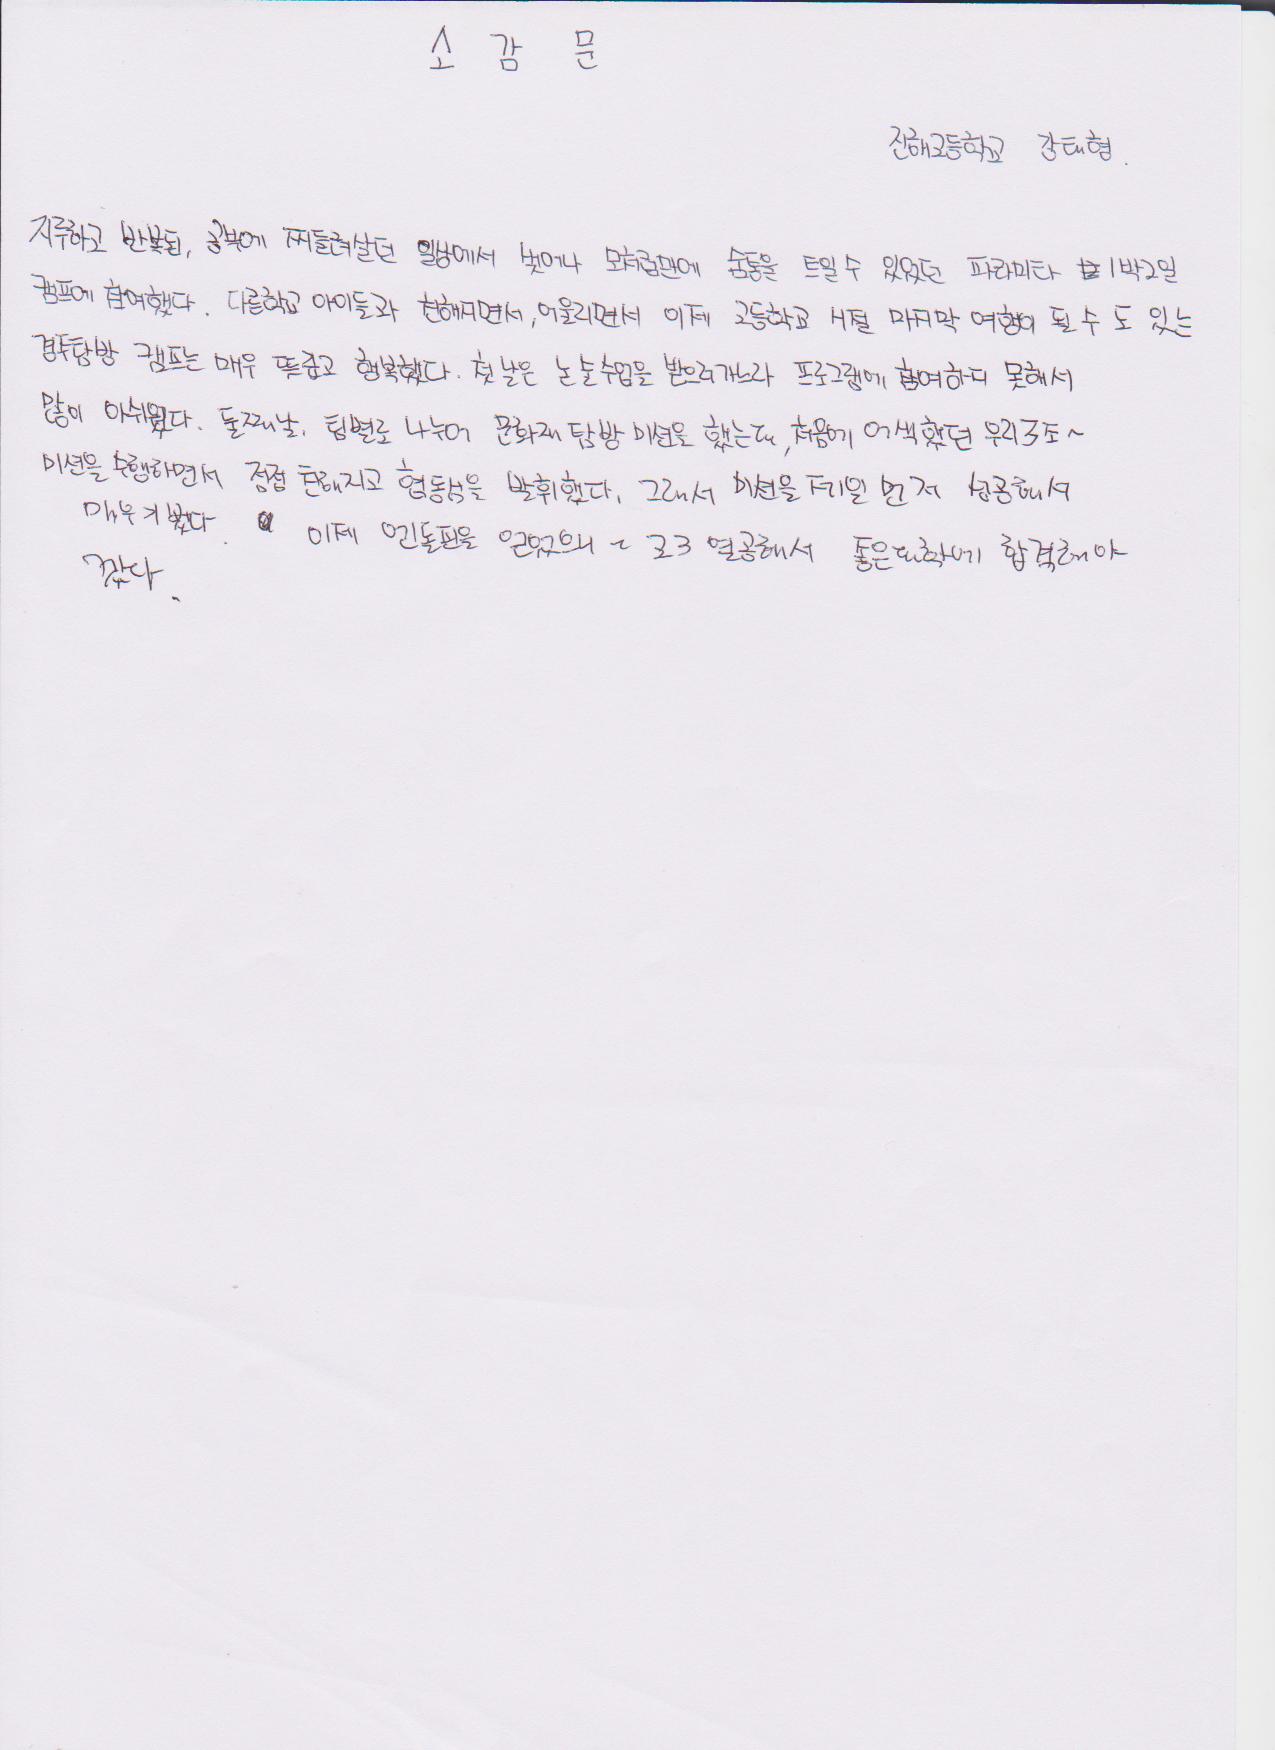 소 감 문
진해고등학교 강태형.
지루하고 반복된, 공부에 찌들려살던 일상에서 벗어나 모처럼만에 숨통을 트일 수 있었던 파라미타 1박2일
캠프에 참여했다. 다른학교 아이들과 친해지면서, 어울리면서 이제 고등학교 시절 마지막 여행이 될 수 도 있는
경주탐방 캠프는 매우 뜻깊고 행복했다. 첫날은 논술수업을 받으러가느라 프로그램에 참여하지 못해서
많이 아쉬웠다. 둘째날, 팀별로 나누어 문화재 탐방 미션을 했는데, 처음에 어색했던 우리 3조~
미션을 수행하면서 점점 친해지고 협동심을 발휘했다. 그래서 미션을 제일 먼저 성공해서
매우 기뻤다. 이제 얻었으니 ~ 고3 열공해서 좋은대학에 합격해야
겠다.